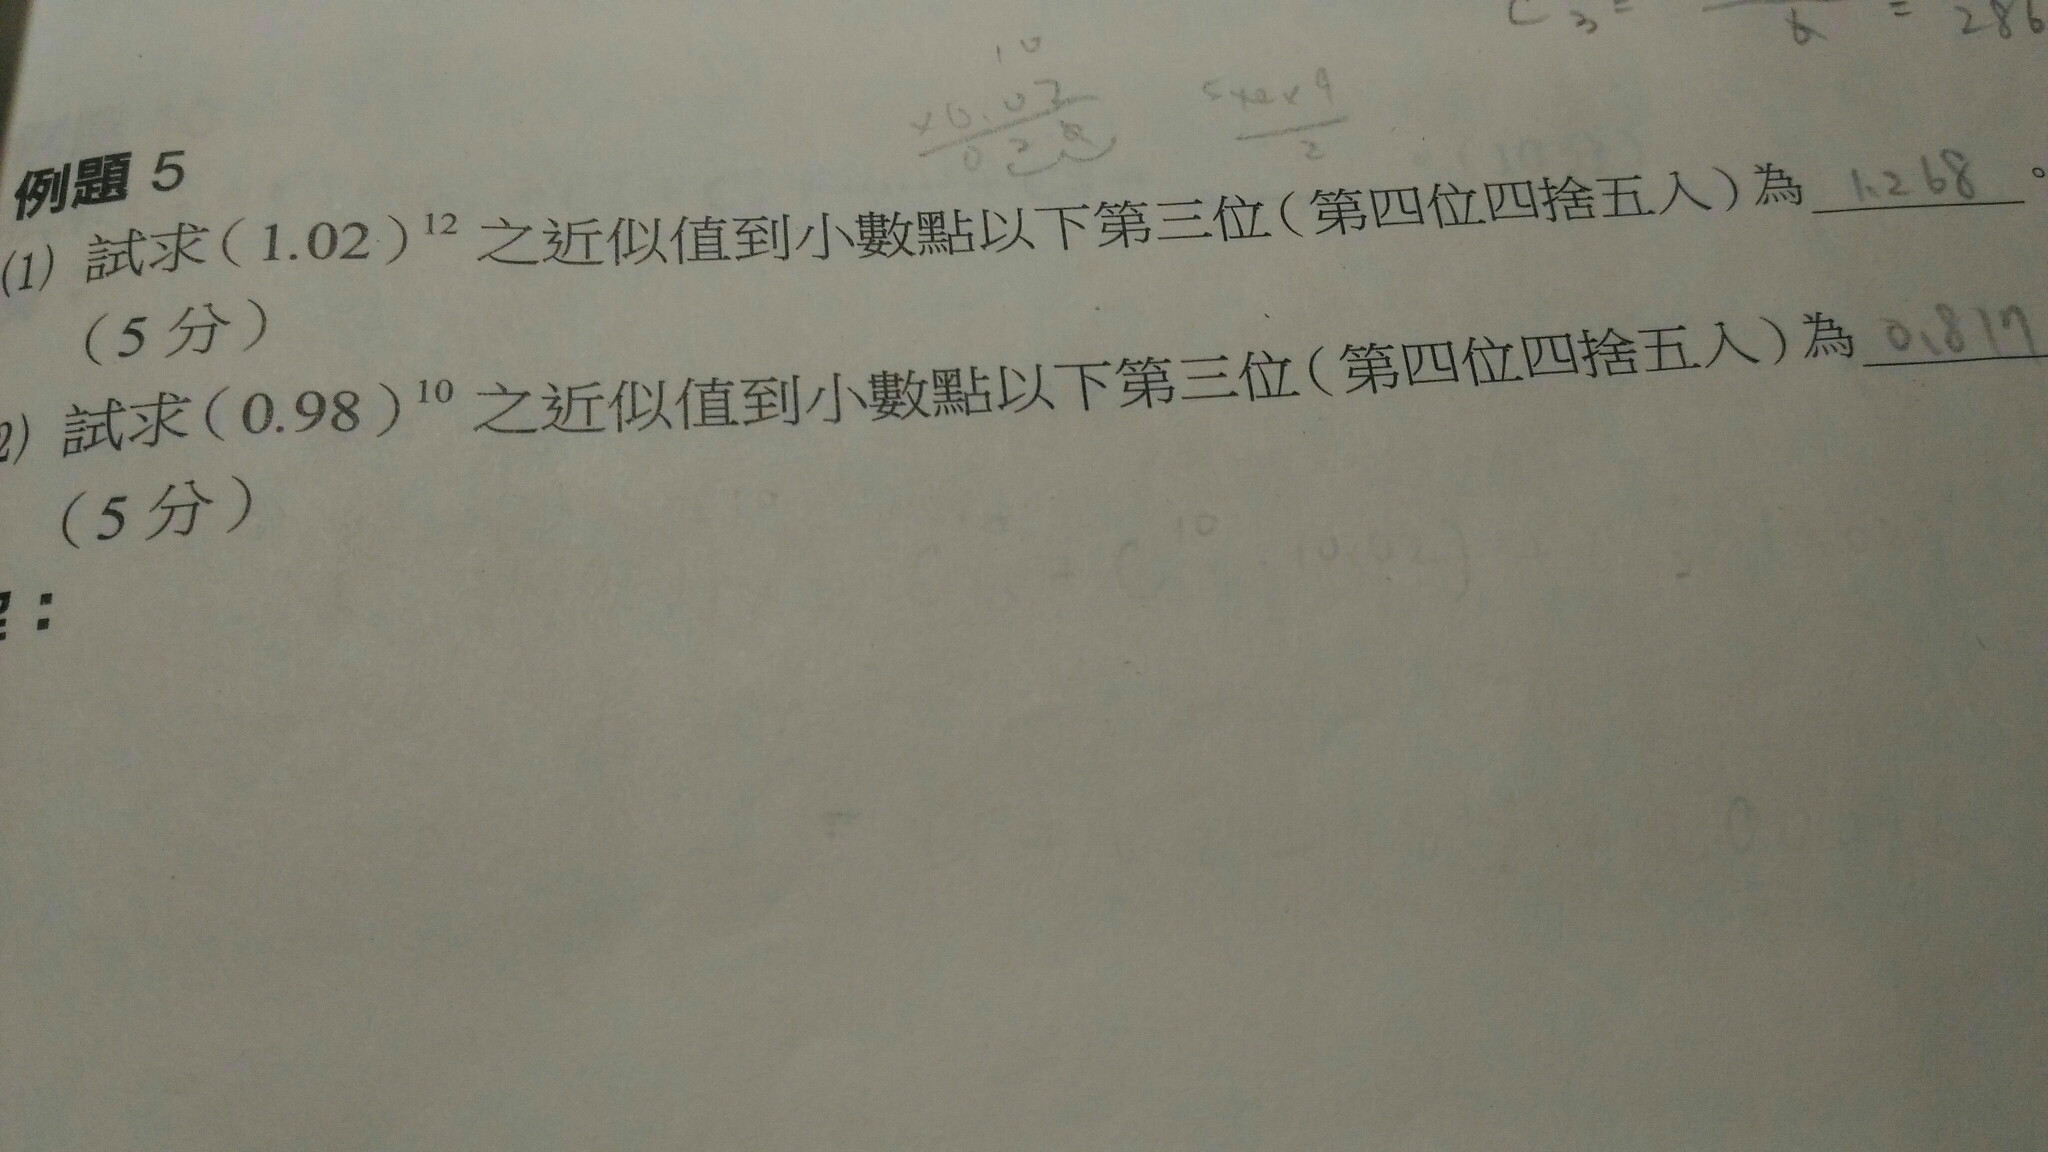 C 3 = 6 = 286
10
×0.02
0 2 0
5×2×9
2
例題 5
(1) 試求(1.02)¹² 之近似值到小數點以下第三位(第四位四捨五入)為 1.268 。
(5分)
2) 試求(0.98)¹⁰ 之近似值到小數點以下第三位(第四位四捨五入)為 0.817
(5分)
: